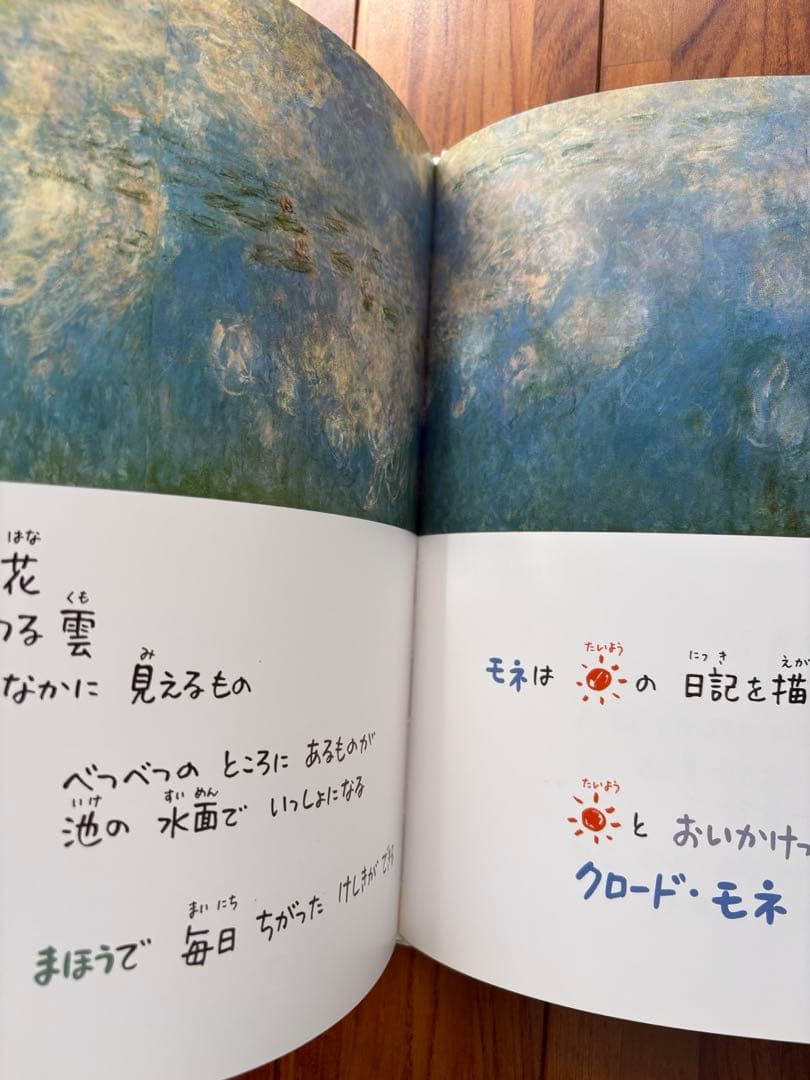 はな
花
つる 雲
くも
なかに 見えるもの
み
べつべつの ところに あるものが
池の 水面で いっしょになる
いけ すい めん
まほうで 毎日 ちがった けしきが できる
まい にち
モネは の 日記を描
たいよう にっ き えが
たいよう
と おいかけっ
クロード・モネ